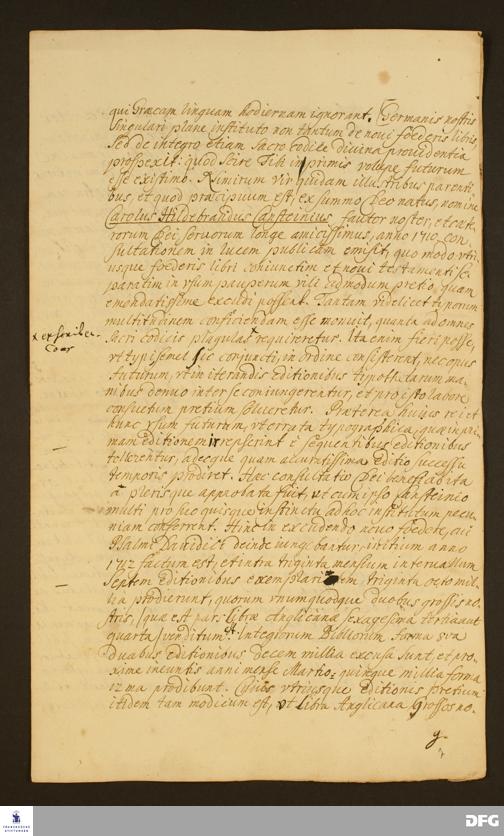 qui Græcam linguam hodiernam ignorant. Germanis nostris
singulari plane instituto non tantum de novi foederis libris
sed de integro etiam Sacro codice divina providentia
prospexit: quod scire Tibi inprimis volupe futurum
esse existimo. Nimirum vir quidam illustribus parenti-
bus, et quod præcipuum est, ex summo Deo natus, nomine
Carolus Hildebrandus Cansteinius, fautor noster, et cete-
rorum Dei servorum longe amicissimus, anno 1710 con
sultationem in lucem publicam emisit, quo modo utri-
usque foederis libri coniunctim et novi testamenti se-
paratim in usum pauperum vili admodum pretio, quam
emendatissime excudi possent. Tantam videlicet typorum
multitudinem conficiendam esse monuit, quanta ad omnes
sacri codicis plagulas x requireretur. Ita enim fieri posse,
ut typi semel sic conjuncti, in ordine consisterent, nec opus
futurum, ut in iterandis editionibus typothetarum ma-
nibus denuo inter se coniungerentur, et pro isto labore
consuetum pretium solveretur. Præterea huius rei et
hunc usum futurum, ut errata typographica, quæ in pri-
mam editionem irrepserint e sequentibus editionibus
tollerentur, adeoque quam accuratissima editio successu
temporis prodiret. Hæc consultatio Dei beneficio ita
a plerisque approbata fuit, ut cum ipso Cansteinio
multi pro suo quisque instinctu ad hoc institutum pecu-
niam conferrent. Hinc in excudendo novo foedere, cui
Psalmi Davidici deinde iungebantur, initium anno
1712 factum est, et intra triginta mensium intervallum
septem editionibus exemplarium triginta octo mil-
lia prodierunt, quorum unumquodque duobus grossis no-
stris, (quæ est pars libræ Anglicanæ sexagesima tertia aut
quarta) venditum est. Integrorum Bibliorum forma 8va
duabus editionibus decem millia excusa sunt, et pro-
xime ineuntis anni mense Martio: quinque millia forma
12ma prodibunt. Cuius utriusque editionis pretium
itidem tam modicum est, ut libra Anglicana Grossos no-
FRANCKESCHE
STIFTUNGEN
DFG